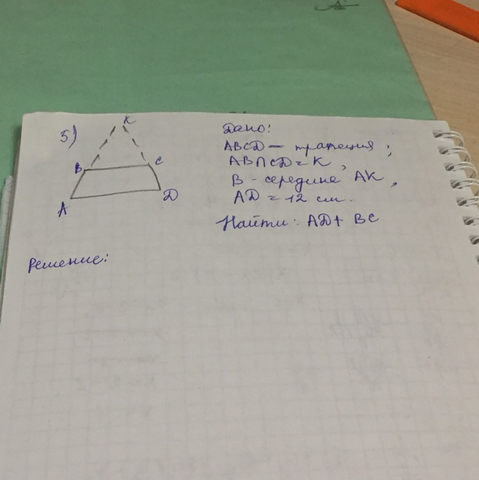 5)
K
B
C
A
D
Дано:
ABCD — трапеция;
AB∩CD = K,
B - середина AK,
AD = 12 см.
Найти: AD + BC
Решение: